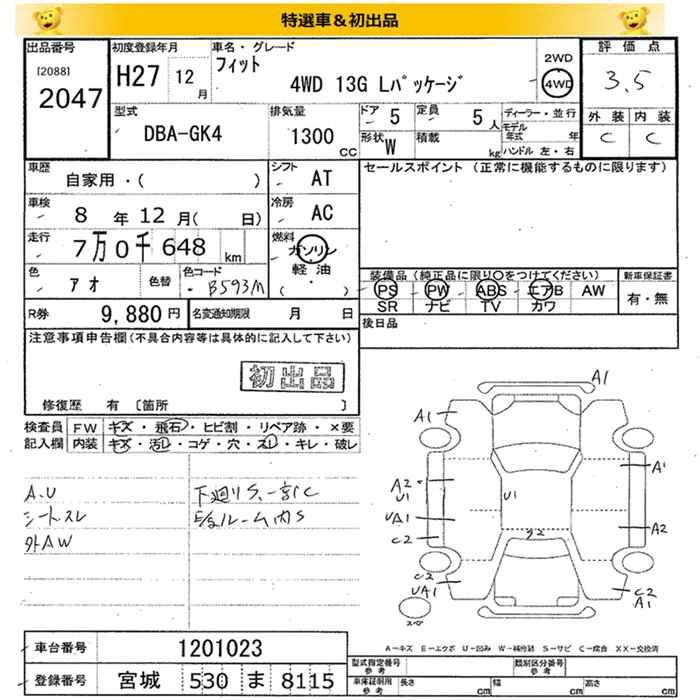 特選車＆初出品
出品番号
[2088]
2047
初度登録年月
H27 12月
車名・グレード
フィット
4WD 13G Lパッケージ
2WD
4WD
評価点
3.5
外装 内装
C C
型式
DBA-GK4
排気量
1300 CC
ドア 5
定員 5人
形状 W
積載 kg
ディーラー・並行
モデル年式 年
ハンドル 左・右
車歴
自家用・( )
シフト
AT
セールスポイント (正常に機能するものに限ります)
車検
8年12月( 日)
冷房
AC
走行
7万0千648km
燃料
ガソリン
軽油
( ・ )
色
アオ
色替
色コード
B593M
装備品 (純正品に限り○をつけてください)
PS PW ABS エアB AW
SR ナビ TV カワ
新車保証書
有・無
R券
9,880円
名変通知期限 月 日
後日品
注意事項申告欄(不具合内容等は具体的に記入して下さい)
初出品
修復歴 有 [箇所 ]
検査員記入欄
FW キズ・飛石・ヒビ割・リペア跡・×要
内装 キズ・汚レ・コゲ・穴・スレ・キレ・破レ
A.U
シートスレ
外AW
下廻りS、一部C
E/gルーム内S
A1
A1
A2
U1
UA1
C2
C2
UA1
U1
A1
A2
C2
A1
A-キズ E-エクボ U-凹み W-補修跡 S-サビ C-腐食 XX-交換済
車台番号 1201023
登録番号 宮城 530 ま 8115
型式指定番号 参考
類別区分番号 参考
車庫証明用 参考
長さ cm 幅 cm 高さ cm